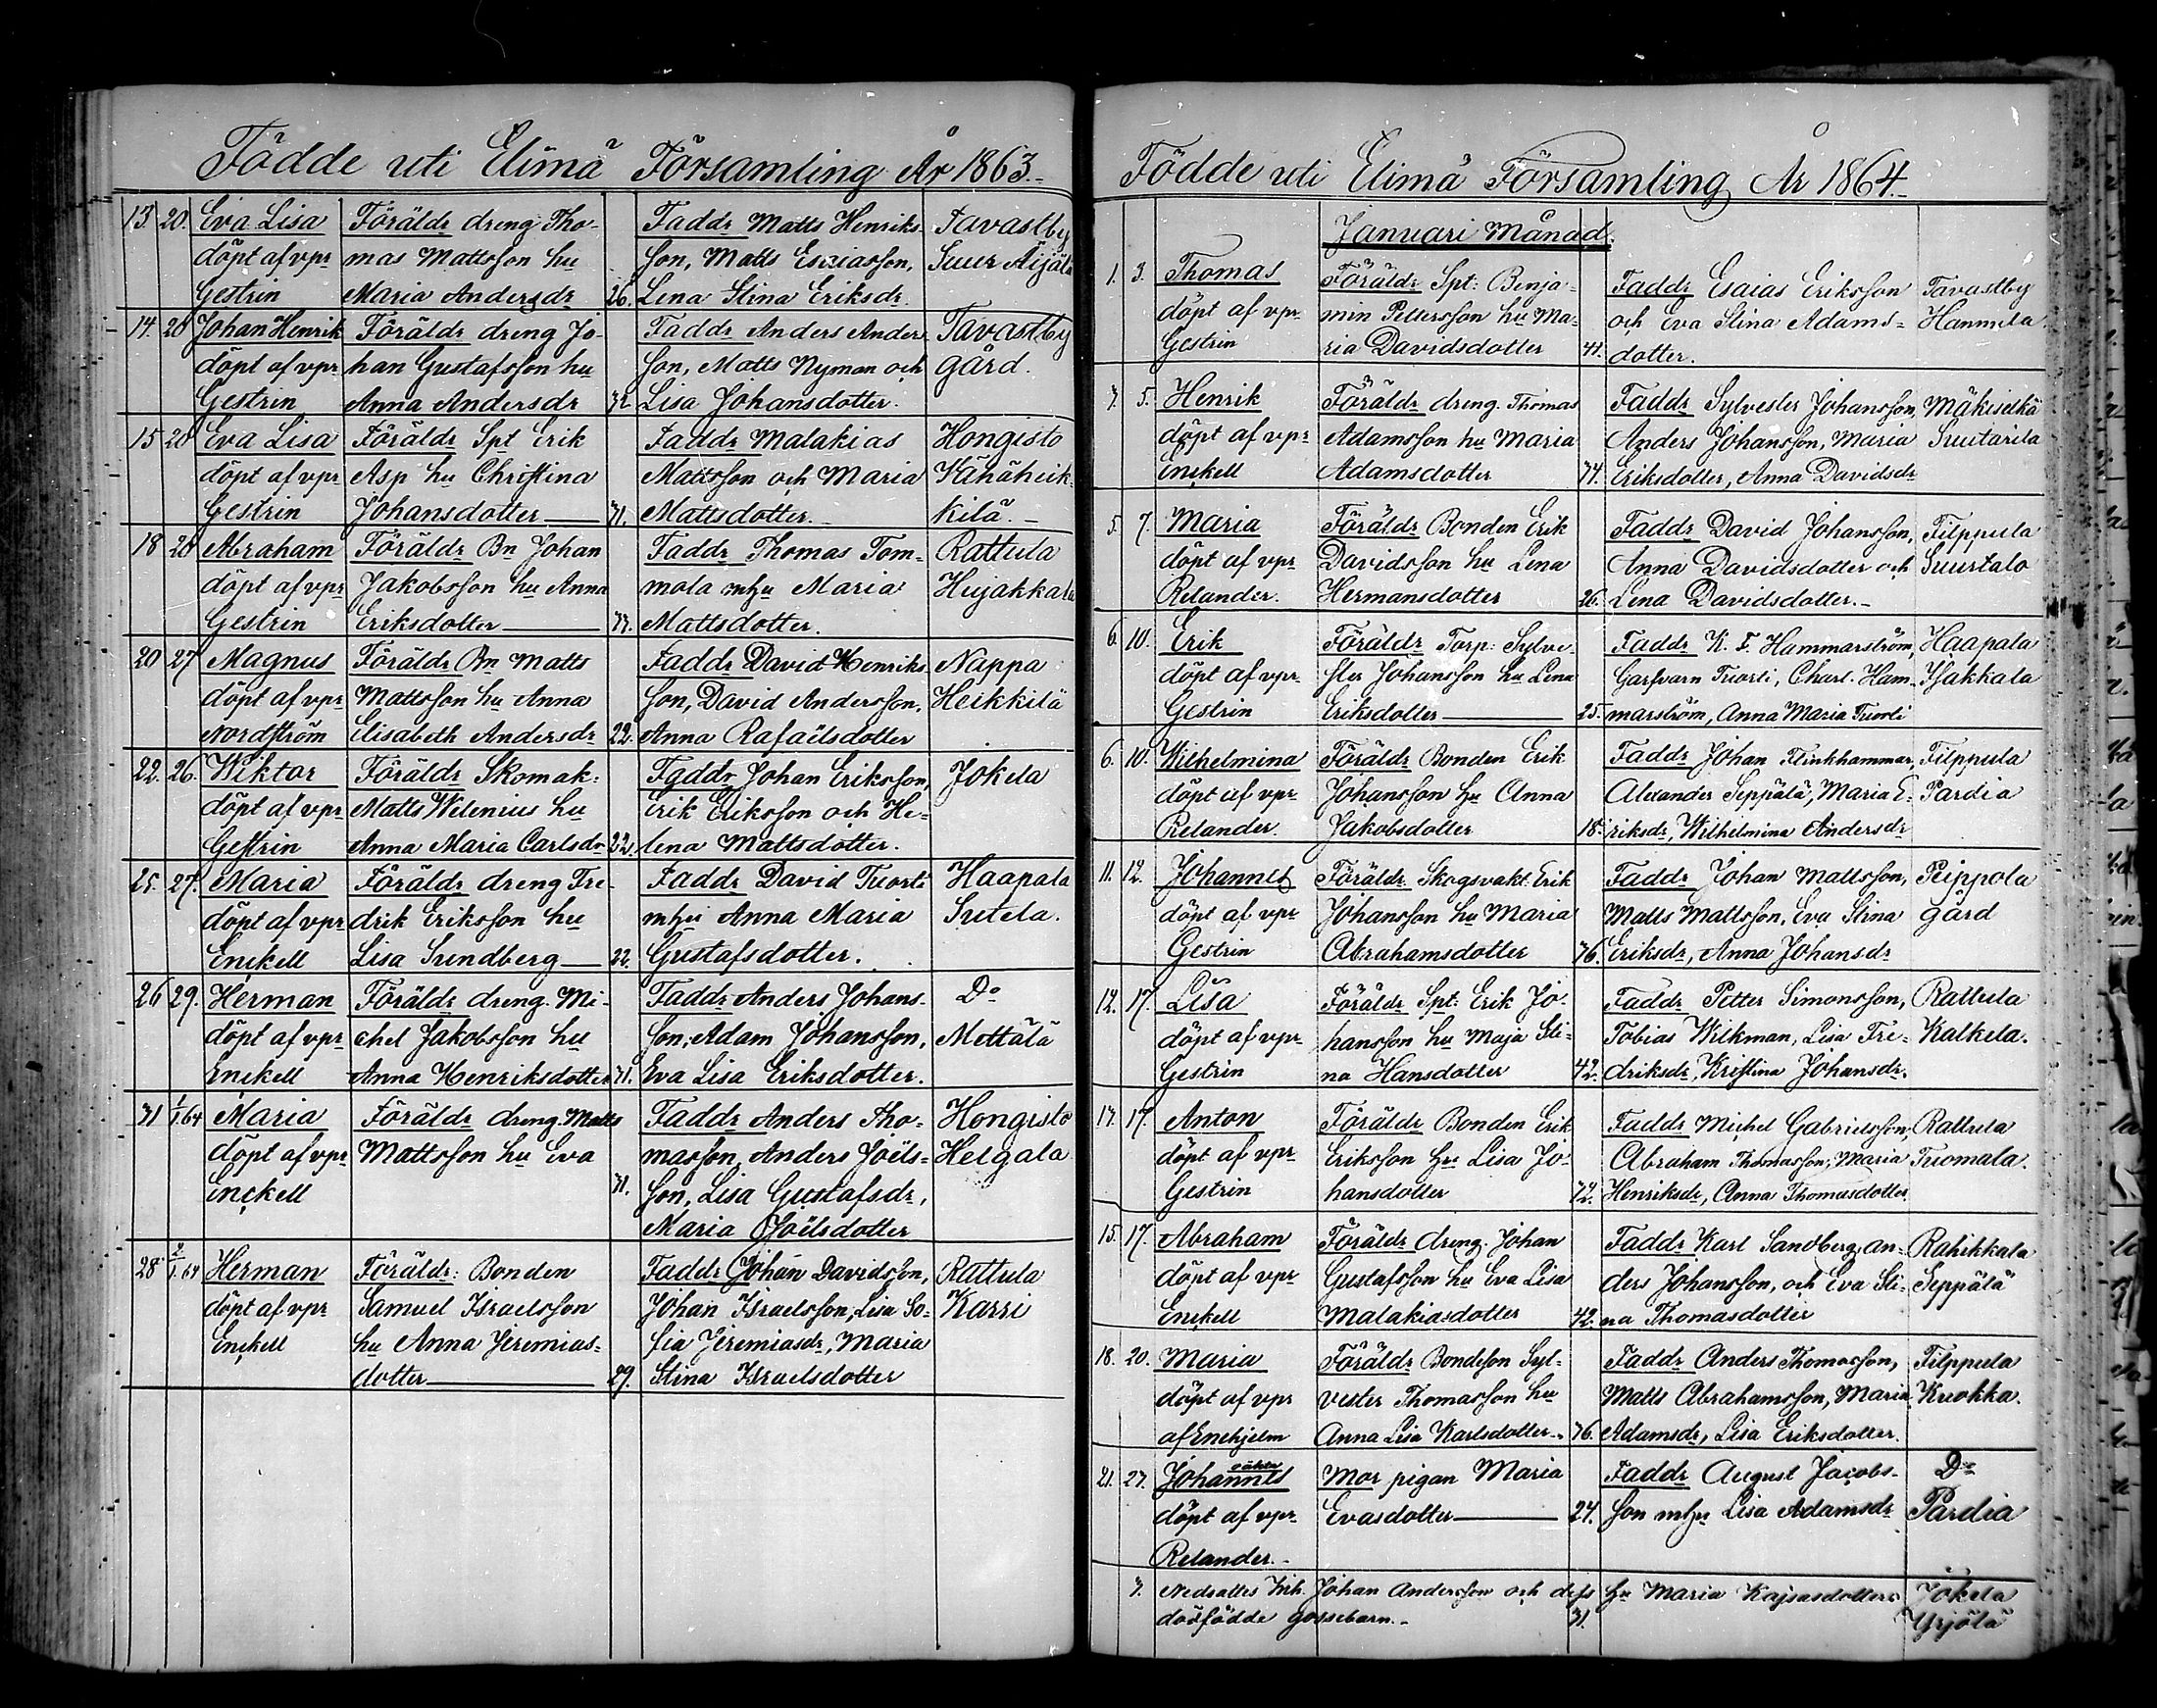 Födde uti Elimä Församling År 1863.
13. 20. Eva Lisa Föräldr dreng Tho- Faddr Matts Henriks- Tavastby
döpt af vpr mas Mattsson hu son, Matts Esaiasson, Suur Äijälä
Gestrin Maria Andersdr 26. Lena Stina Eriksdr.
14. 20 Johan Henrik Föräldr dreng Jo- Faddr Anders Anders Tavastby
döpt af vpr han Gustafsson hu son, Matts Nyman och gård.
Gestrin Anna Andersdr 32. Lisa Johansdotter.
15 20 Eva Lisa Föräldr Spt Erik Faddr Malakias Hongisto
döpt af vpr Asp hu Christina Mattsson och Maria Vähäheik-
Gestrin Johansdotter 31. Mattsdotter. kilä.
18 20 Abraham Föräldr Bn Johan Faddr Thomas Tom- Rattula
döpt af vpr Jakobsson hu Anna mola mhu Maria Hujakkala
Gestrin Eriksdotter 33. Mattsdotter.
20 27 Magnus Föräldr Bn Matts Faddr David Henriks- Nappa
döpt af vpr Mattsson hu Anna son, David Andersson, Heikkilä
Nordström Elisabeth Andersdr 22. Anna Rafaëlsdotter
22. 26. Wiktor Föräldr Skomak: Faddr Johan Eriksson, Jokela
döpt af vpr Matts Wilenius hu Erik Eriksson och He-
Gestrin Anna Maria Carlsdr 22. lena Mattsdotter.
25. 27. Maria Föräldr dreng Fre- Faddr David Tuorti Haapala
döpt af vpr drik Eriksson hu mhu Anna Maria Sutela.
Enckell Lisa Sundberg 22. Gustafsdotter.
26 29. Herman Föräldr dreng. Mi- Faddr Anders Johans- Do
döpt af vpr chel Jakobsson hu son, Adam Johansson, Mettälä
Enckell Anna Henriksdotter 31. Eva Lisa Eriksdotter.
31 1/1.64 Maria Föräldr dreng. Matts Faddr Anders Tho- Hongisto
döpt af vpr Mattsson hu Eva masson, Anders Joëls- Helgala
Enckell 31. son, Lisa Gustafsdr,
Maria Joëlsdotter
28 2/1.64 Herman Föräldr: Bonden Faddr Johan Davidsson, Rattula
döpt af vpr Samuel Israelsson Johan Israelsson, Lisa So- Karri
Enckell hu Anna Jeremias- fia Jeremiasdr, Maria
dotter 29. Stina Israelsdotter
Födde uti Elimä Församling År 1864.
Januari Månad.
1. 3. Thomas Föräldr Spt: Benja- Faddr Esaias Eriksson Tavastby
döpt af vpr min Pettersson hu Ma- och Eva Stina Adams- Hannula
Gestrin ria Davidsdotter 41. dotter.
3. 5. Henrik Föräldr dreng. Thomas Faddr Sylvester Johansson, Mäkiselkä
döpt af vpr Adamsson hu Maria Anders Johansson, Maria Suutarila
Enckell Adamsdotter 34. Eriksdotter, Anna Davidsdr
5. 7. Maria Föräldr Bonden Erik Faddr David Johansson, Filppula
döpt af vpr Davidsson hu Lena Anna Davidsdotter och Suurtalo
Relander. Hermansdotter 26. Lena Davidsdotter.
6. 10. Erik Föräldr Torp: Sylve- Faddr K. F. Hammarström, Haapala
döpt af vpr ster Johansson hu Lena Garfvarn Tuorti, Charl. Ham- Isakkala
Gestrin Eriksdotter 25. marström, Anna Maria Tuorti
6. 10. Wilhelmina Föräldr Bonden Erik Faddr Johan Flinkhammar, Filppula
döpt af vpr Johansson hu Anna Alexander Seppälä, Maria E- Pardia
Relander. Jakobsdotter 18. riksdr, Wilhelmina Andersdr
11. 12. Johannes Föräldr Skogsvakt. Erik Faddr Johan Mattsson, Peippola
döpt af vpr Johansson hu Maria Matts Mattsson, Eva Stina gård
Gestrin Abrahamsdotter 36. Eriksdr, Anna Johansdr
12. 17. Lisa Föräldr Spt: Erik Jo- Faddr Petter Simonsson, Rattula
döpt af vpr hansson hu Maja Sti- Tobias Wilkman, Lisa Fre- Kalkela.
Gestrin na Hansdotter 42. driksdr, Kristina Johansdr.
13. 17. Anton Föräldr Bonden Erik Faddr Michel Gabrielsson, Rattula
döpt af vpr Eriksson hu Lisa Jo- Abraham Thomasson, Maria Tuomala.
Gestrin hansdotter 32. Henriksdr, Anna Thomasdotter
15. 17. Abraham Föräldr dreng. Johan Faddr Karl Sandberg, An- Rahikkala
döpt af vpr Gustafsson hu Eva Lisa ders Johansson, och Eva Sti- Seppälä
Enckell Malakiasdotter 42. na Thomasdotter
18. 20. Maria Föräldr Bondeson Syl- Faddr Anders Thomasson, Filppula
döpt af vpr vester Thomasson hu Matts Abrahamsson, Maria Kuokka.
af Enehjelm Anna Lisa Karlsdotter 36. Adamsdr, Lisa Eriksdotter.
21. 27. oäkta Johannes Mor pigan Maria Faddr August Jacobs- Do
döpt af vpr Evasdotter 24. son mhu Lisa Adamsdr Pardia
Relander.
7. Nedsattes Inh. Johan Andersson och dess hu Maria Kajsasdotters Jokela
dödfödde gossebarn. 31. Yrjölä